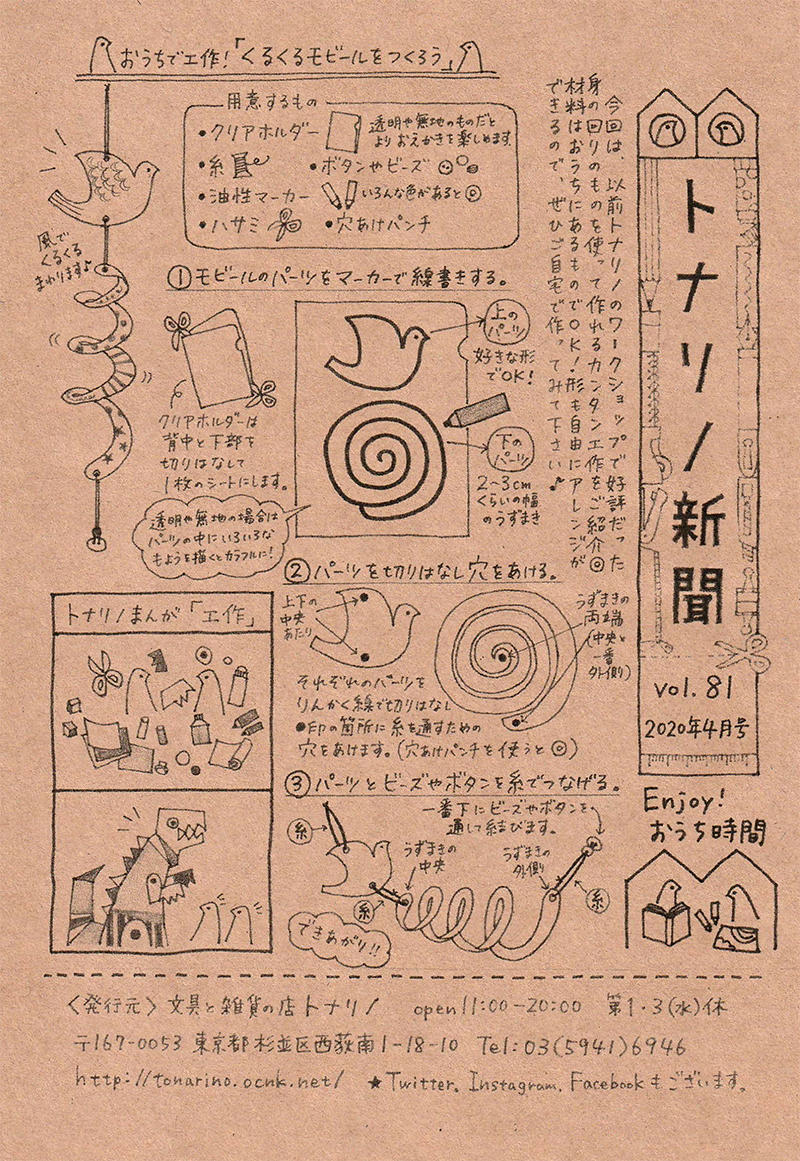 おうちで工作!「くるくるモビールをつくろう」
トナリノ新聞
vol. 81
2020年4月号
今回は、以前トナリノのワークショップで好評だった
身の回りのものを使って作れるカンタン工作をご紹介◎
材料はおうちにあるものでOK!形も自由にアレンジが
できるので、ぜひご自宅で作ってみて下さい♪
用意するもの
•クリアホルダー
透明や無地のものだと
よりおえかきを楽しめます。
•糸
•ボタンやビーズ
•油性マーカー
いろんな色があると◎
•ハサミ
•穴あけパンチ
風で
くるくる
まわります♪
①モビールのパーツをマーカーで線書きする。
上の
パーツ
好きな形
でOK!
下の
パーツ
2~3cm
くらいの幅
のうずまき
クリアホルダーは
背中と下部を
切りはなして
1枚のシートにします。
透明や無地の場合は
パーツの中にいろいろな
もようを描くとカラフルに!
②パーツを切りはなし穴をあける。
上下の
中央
あたり
うずまきの
両端
(中央と
一番
外側)
それぞれのパーツを
りんかく線で切りはなし
●印の箇所に糸を通すための
穴をあけます。(穴あけパンチを使うと◎)
③パーツとビーズやボタンを糸でつなげる。
一番下にビーズやボタンを
通して結びます。
糸
うずまきの
中央
うずまきの
外側
糸
糸
できあがり!!
トナリノまんが「工作」
Enjoy!
おうち時間
<発行元> 文具と雑貨の店トナリノ open11:00-20:00 第1・3(水)休
〒167-0053 東京都杉並区西荻南1-18-10 Tel:03(5941)6946
http://tonarino.ocnk.net/ ★Twitter. Instagram. Facebookもございます。